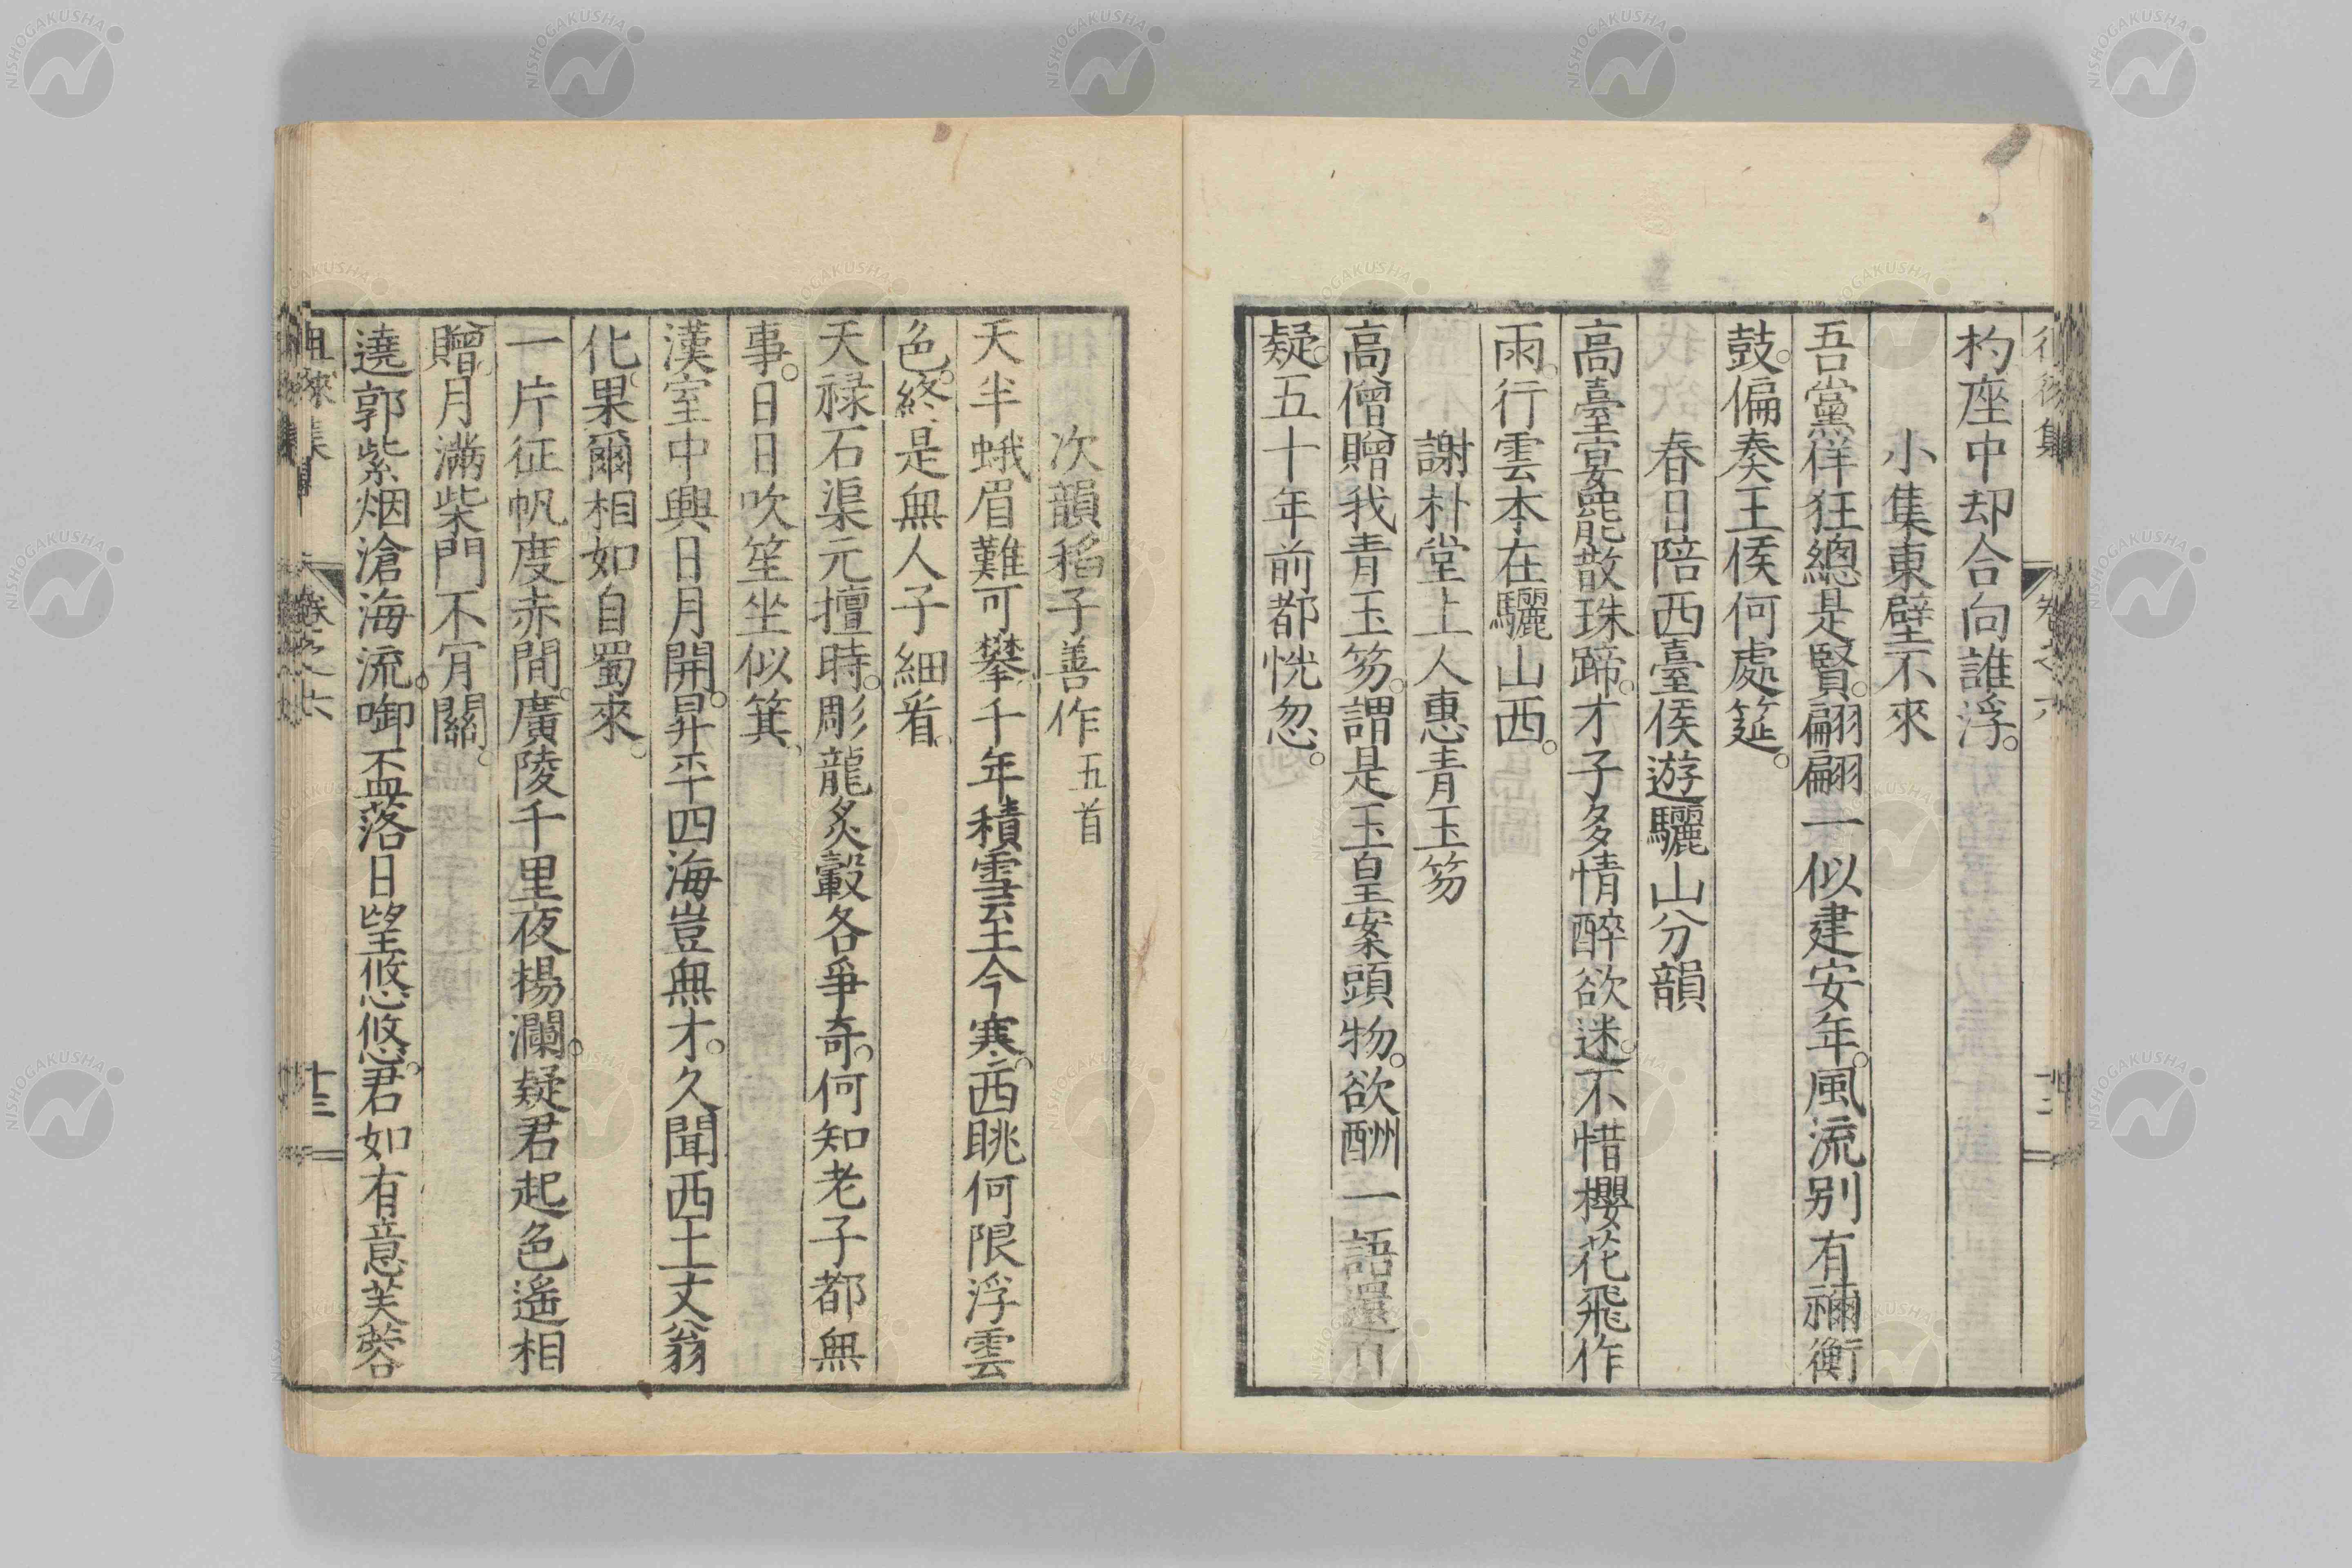 杓座中却合向誰浮。
小集東壁不來
吾黨佯狂總是賢。翩翩一似建安年。風流別有禰衡
鼓。偏奏王侯何處筵。
春日陪西臺侯遊驪山分韻
高臺宴罷散珠蹄。才子多情醉欲迷。不惜櫻花飛作
雨。行雲本在驪山西。
謝朴堂上人惠青玉笏
高僧贈我青玉笏。謂是玉皇案頭物。欲酬一語還自
疑。五十年前都恍忽。
次韻稻子善作五首
天半蛾眉難可攀。千年積雪至今寒。西眺何限浮雲
色。終是無人子細看。
天禄石渠元擅時。彫龍炙轂各爭奇。何知老子都無
事。日日吹笙坐似箕。
漢室中興日月開。昇平四海豈無才。久聞西土丈翁
化。果爾相如自蜀來。
一片征帆度赤間。廣陵千里夜楊瀾。疑君起色遙相
贈。月滿柴門不肎關。
遶郭紫烟滄海流。啣盃落日望悠悠。君如有意芙蓉
徂徠集
卷之六
十三